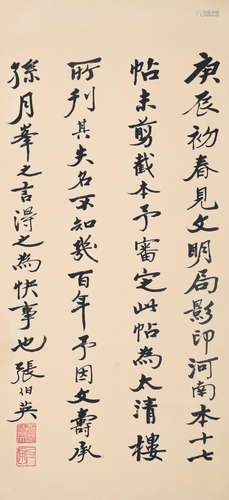 庚辰初春見文明局影印河南本十七
帖未剪截本予審定此帖為太清樓
所刊其失名不知幾百年予因文壽承
孫月峯之言得之為快事也張伯英